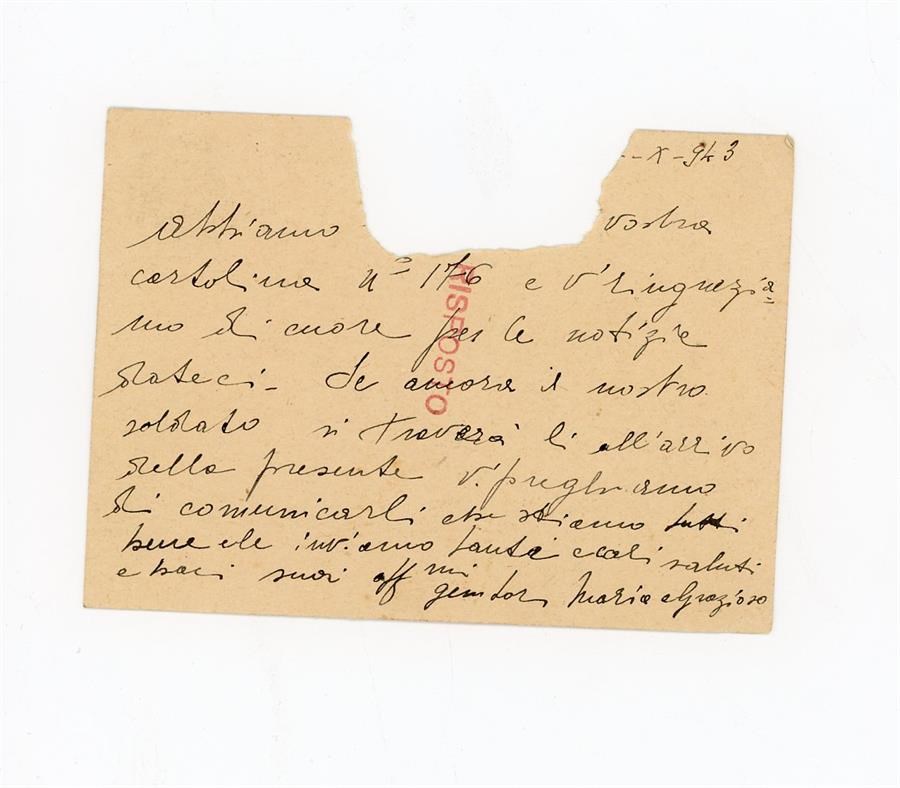 -- X - 943
Abbiamo vostra
cartolina n° 176 e v'ringrazia=
mo di cuore per le notizie
dateci - Se ancora il nostro
soldato si troverà lì all'arrivo
della presente v'preghiamo
di comunicarli che stiamo tutti
bene e le inviamo tanti cari saluti
e baci suoi aff mi
genitori Maria e Grazioso
RISPOSTO